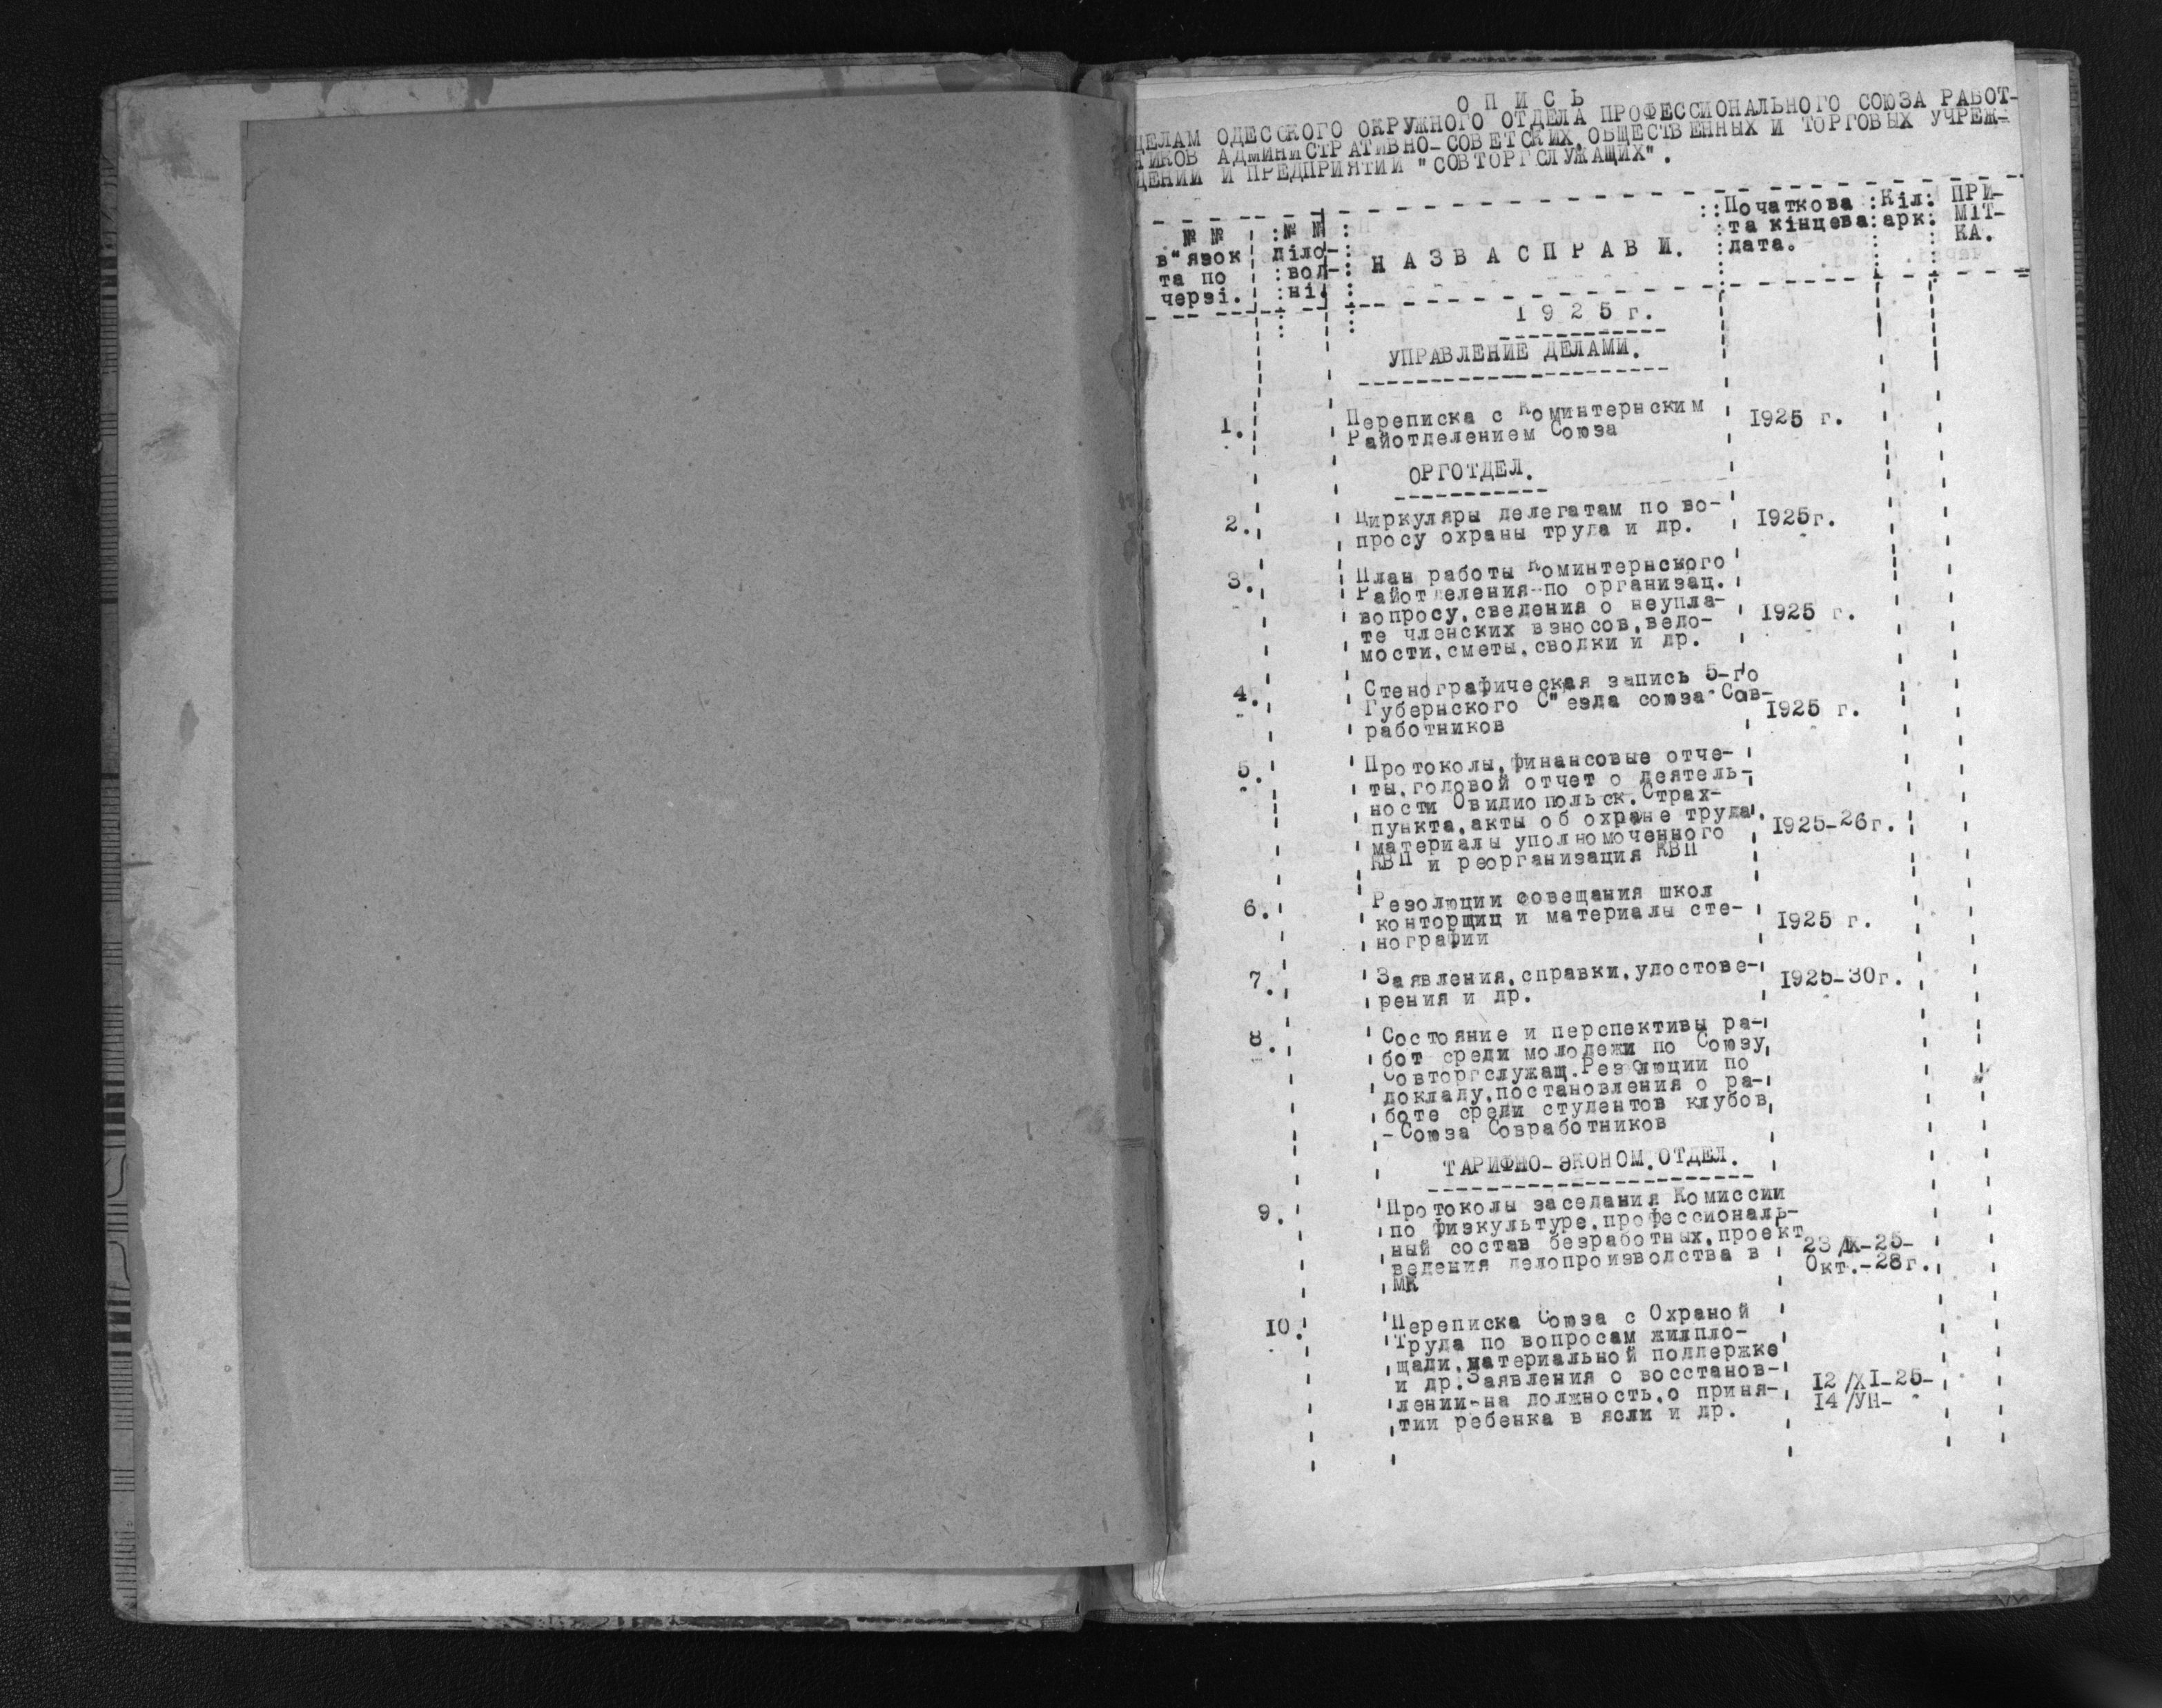 О П И С Ь
ДЕЛАМ ОДЕССКОГО ОКРУЖНОГО ОТДЕЛА ПРОФЕССИОНАЛЬНОГО СОЮЗА РАБОТ-
НИКОВ АДМИНИСТРАТИВНО-СОВЕТСКИХ, ОБЩЕСТВЕННЫХ И ТОРГОВЫХ УЧРЕЖ-
ДЕНИЙ И ПРЕДПРИЯТИЙ "СОВТОРГСЛУЖАЩИХ".
№ №
в"язок
та по
черзі.
№ №
діло-
вод-
ні.
Н А З В А С П Р А В И.
Початкова
та кінцева
дата.
Кіл.
арк.
ПРИ-
МІТ-
КА.
1 9 2 5 г.
УПРАВЛЕНИЕ ДЕЛАМИ.
1.
Переписка с Коминтернским
Райотделением Союза
1925 г.
ОРГОТДЕЛ.
2.
Циркуляры делегатам по во-
просу охраны труда и др.
1925г.
3.
План работы Коминтернского
Райотделения-по организац.
вопросу,сведения о неупла-
те членских взносов,ведо-
мости,сметы,сводки и др.
1925 г.
4.
Стенографическая запись 5-го
Губернского С"езда союза Сов-
работников
1925 г.
5.
Протоколы,финансовые отче-
ты,годовой отчет о деятель-
ности Овидиопольск.Страх-
пункта,акты об охране труда,
материалы уполномоченного
КВП и реорганизация КВП
1925-26г.
6.
Резолюции совещания школ
конторщиц и материалы сте-
нографии
1925 г.
7.
Заявления,справки,удостове-
рения и др.
1925-30г.
8.
Состояние и перспективы ра-
бот среди молодежи по Союзу
Совторгслужащ.Резолюции по
докладу,постановления о ра-
боте среди студентов клубов
-Союза Совработников
ТАРИФНО-ЭКОНОМ.ОТДЕЛ.
9.
Протоколы заседания Комиссии
по физкультуре,профессиональ-
ный состав безработных,проект
ведения делопроизводства в
МК
23/IX-25-
Окт.-28г.
10.
Переписка Союза с Охраной
Труда по вопросам жилпло-
щади,материальной поддержке
и др.Заявления о восстанов-
лении-на должность,о приня-
тии ребенка в ясли и др.
12/XI-25-
14/УН-